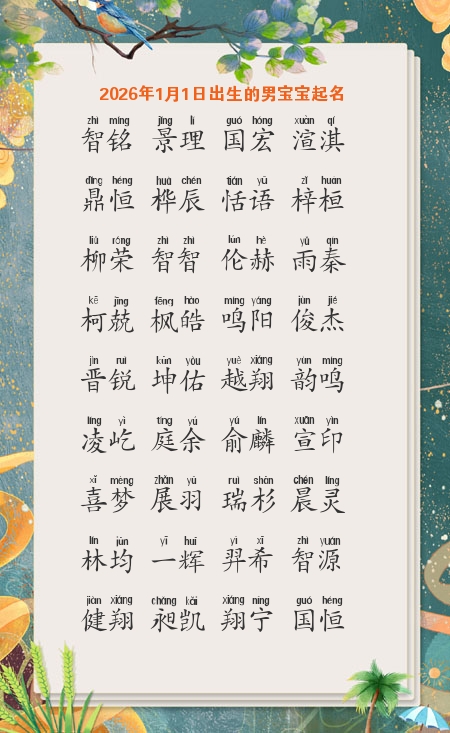 2026年1月1日出生的男宝宝起名
zhì míng jǐng lǐ guó hóng xuàn qí
智铭 景理 国宏 渲淇
dǐng héng huà chén tián yǔ zǐ huán
鼎恒 桦辰 恬语 梓桓
liǔ róng zhì zhì lún hè yǔ qín
柳荣 智智 伦赫 雨秦
kē jīng fēng hào míng yáng jùn jié
柯兢 枫皓 鸣阳 俊杰
jìn ruì kūn yòu yuè xiáng yùn míng
晋锐 坤佑 越翔 韵鸣
líng yì tíng yú yú lín xuān yìn
凌屹 庭余 俞麟 宣印
xǐ mèng zhǎn yǔ ruì shān chén líng
喜梦 展羽 瑞杉 晨灵
lín jūn yī huī yì xī zhì yuán
林均 一辉 羿希 智源
jiàn xiáng chǎng kǎi xiáng níng guó héng
健翔 昶凯 翔宁 国恒